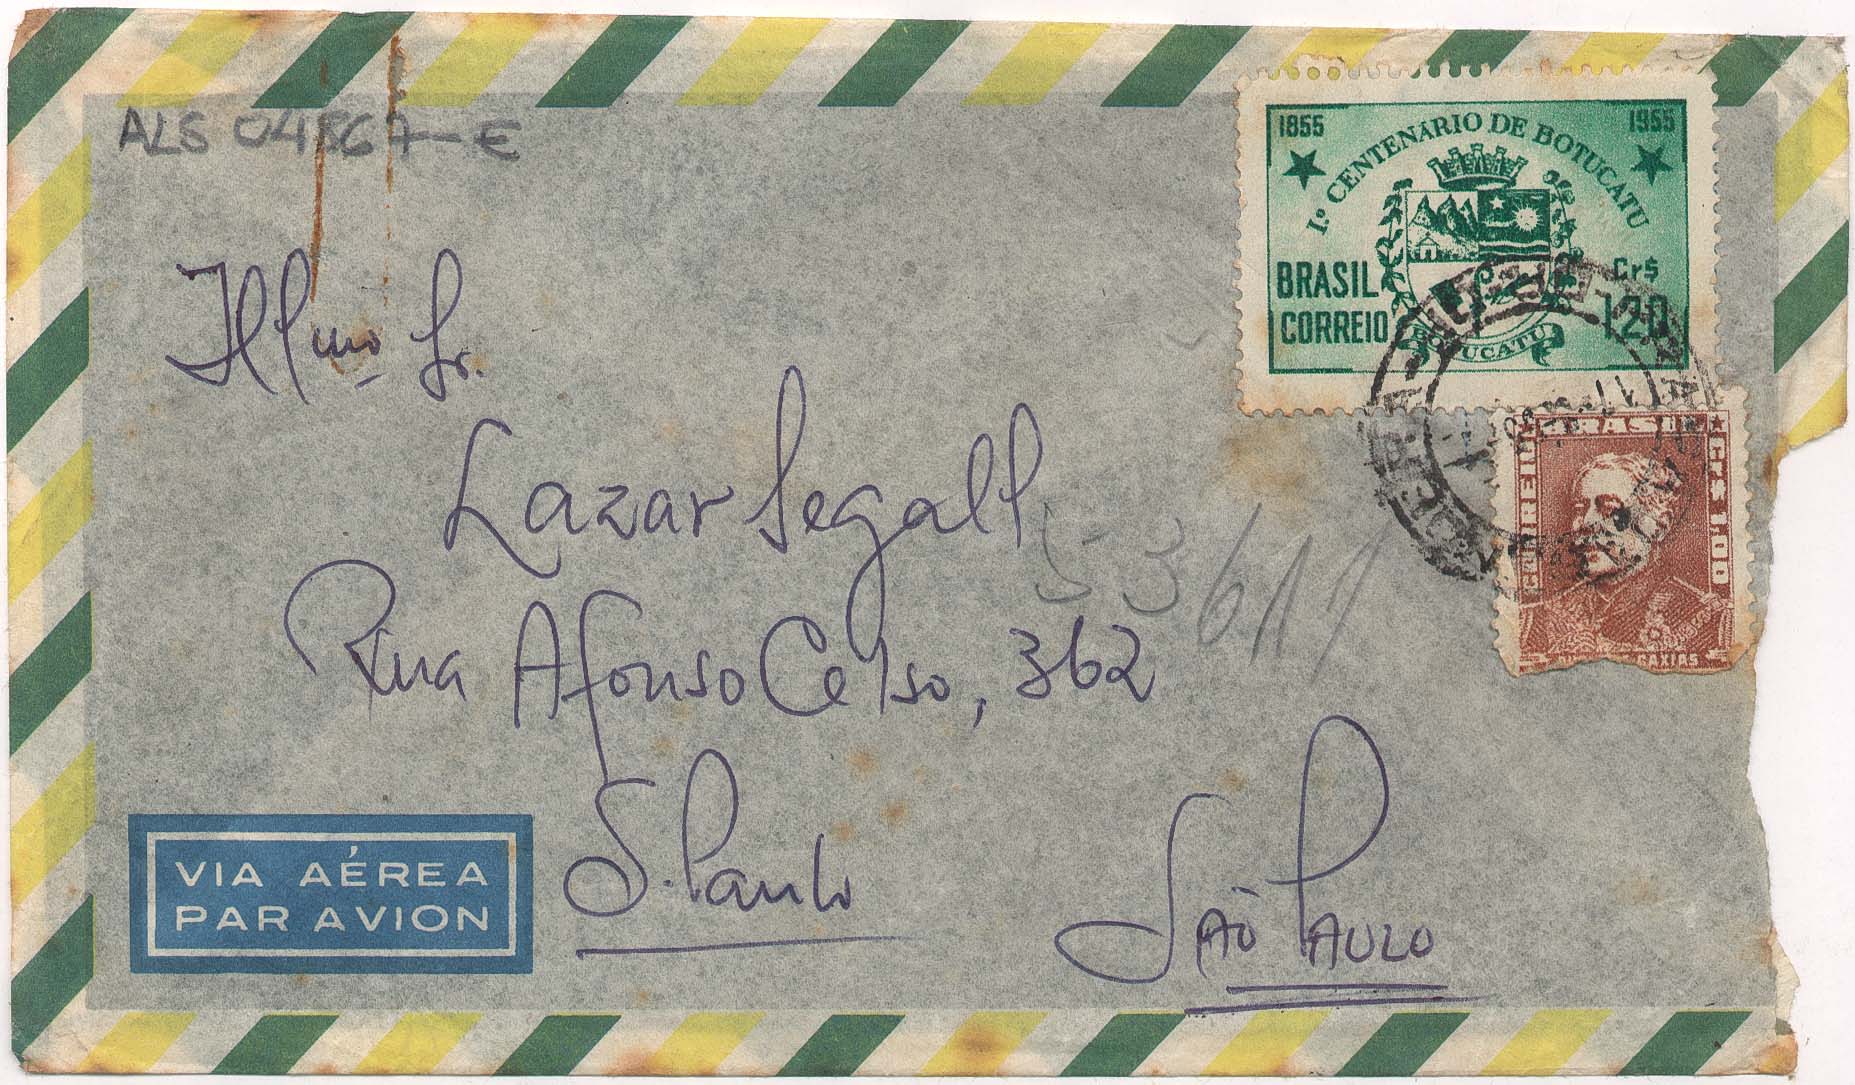 ALS 04567-E
1855 1955
1.º CENTENÁRIO DE BOTUCATU
BRASIL
CORREIO
Cr$
1,20
BOTUCATU
BRASIL
CORREIO
Cr$ 1,00
CAXIAS
Illmo Sr.
Lazar Segall
Rua Afonso Celso, 362
S. Paulo
SÃO PAULO
VIA AÉREA
PAR AVION